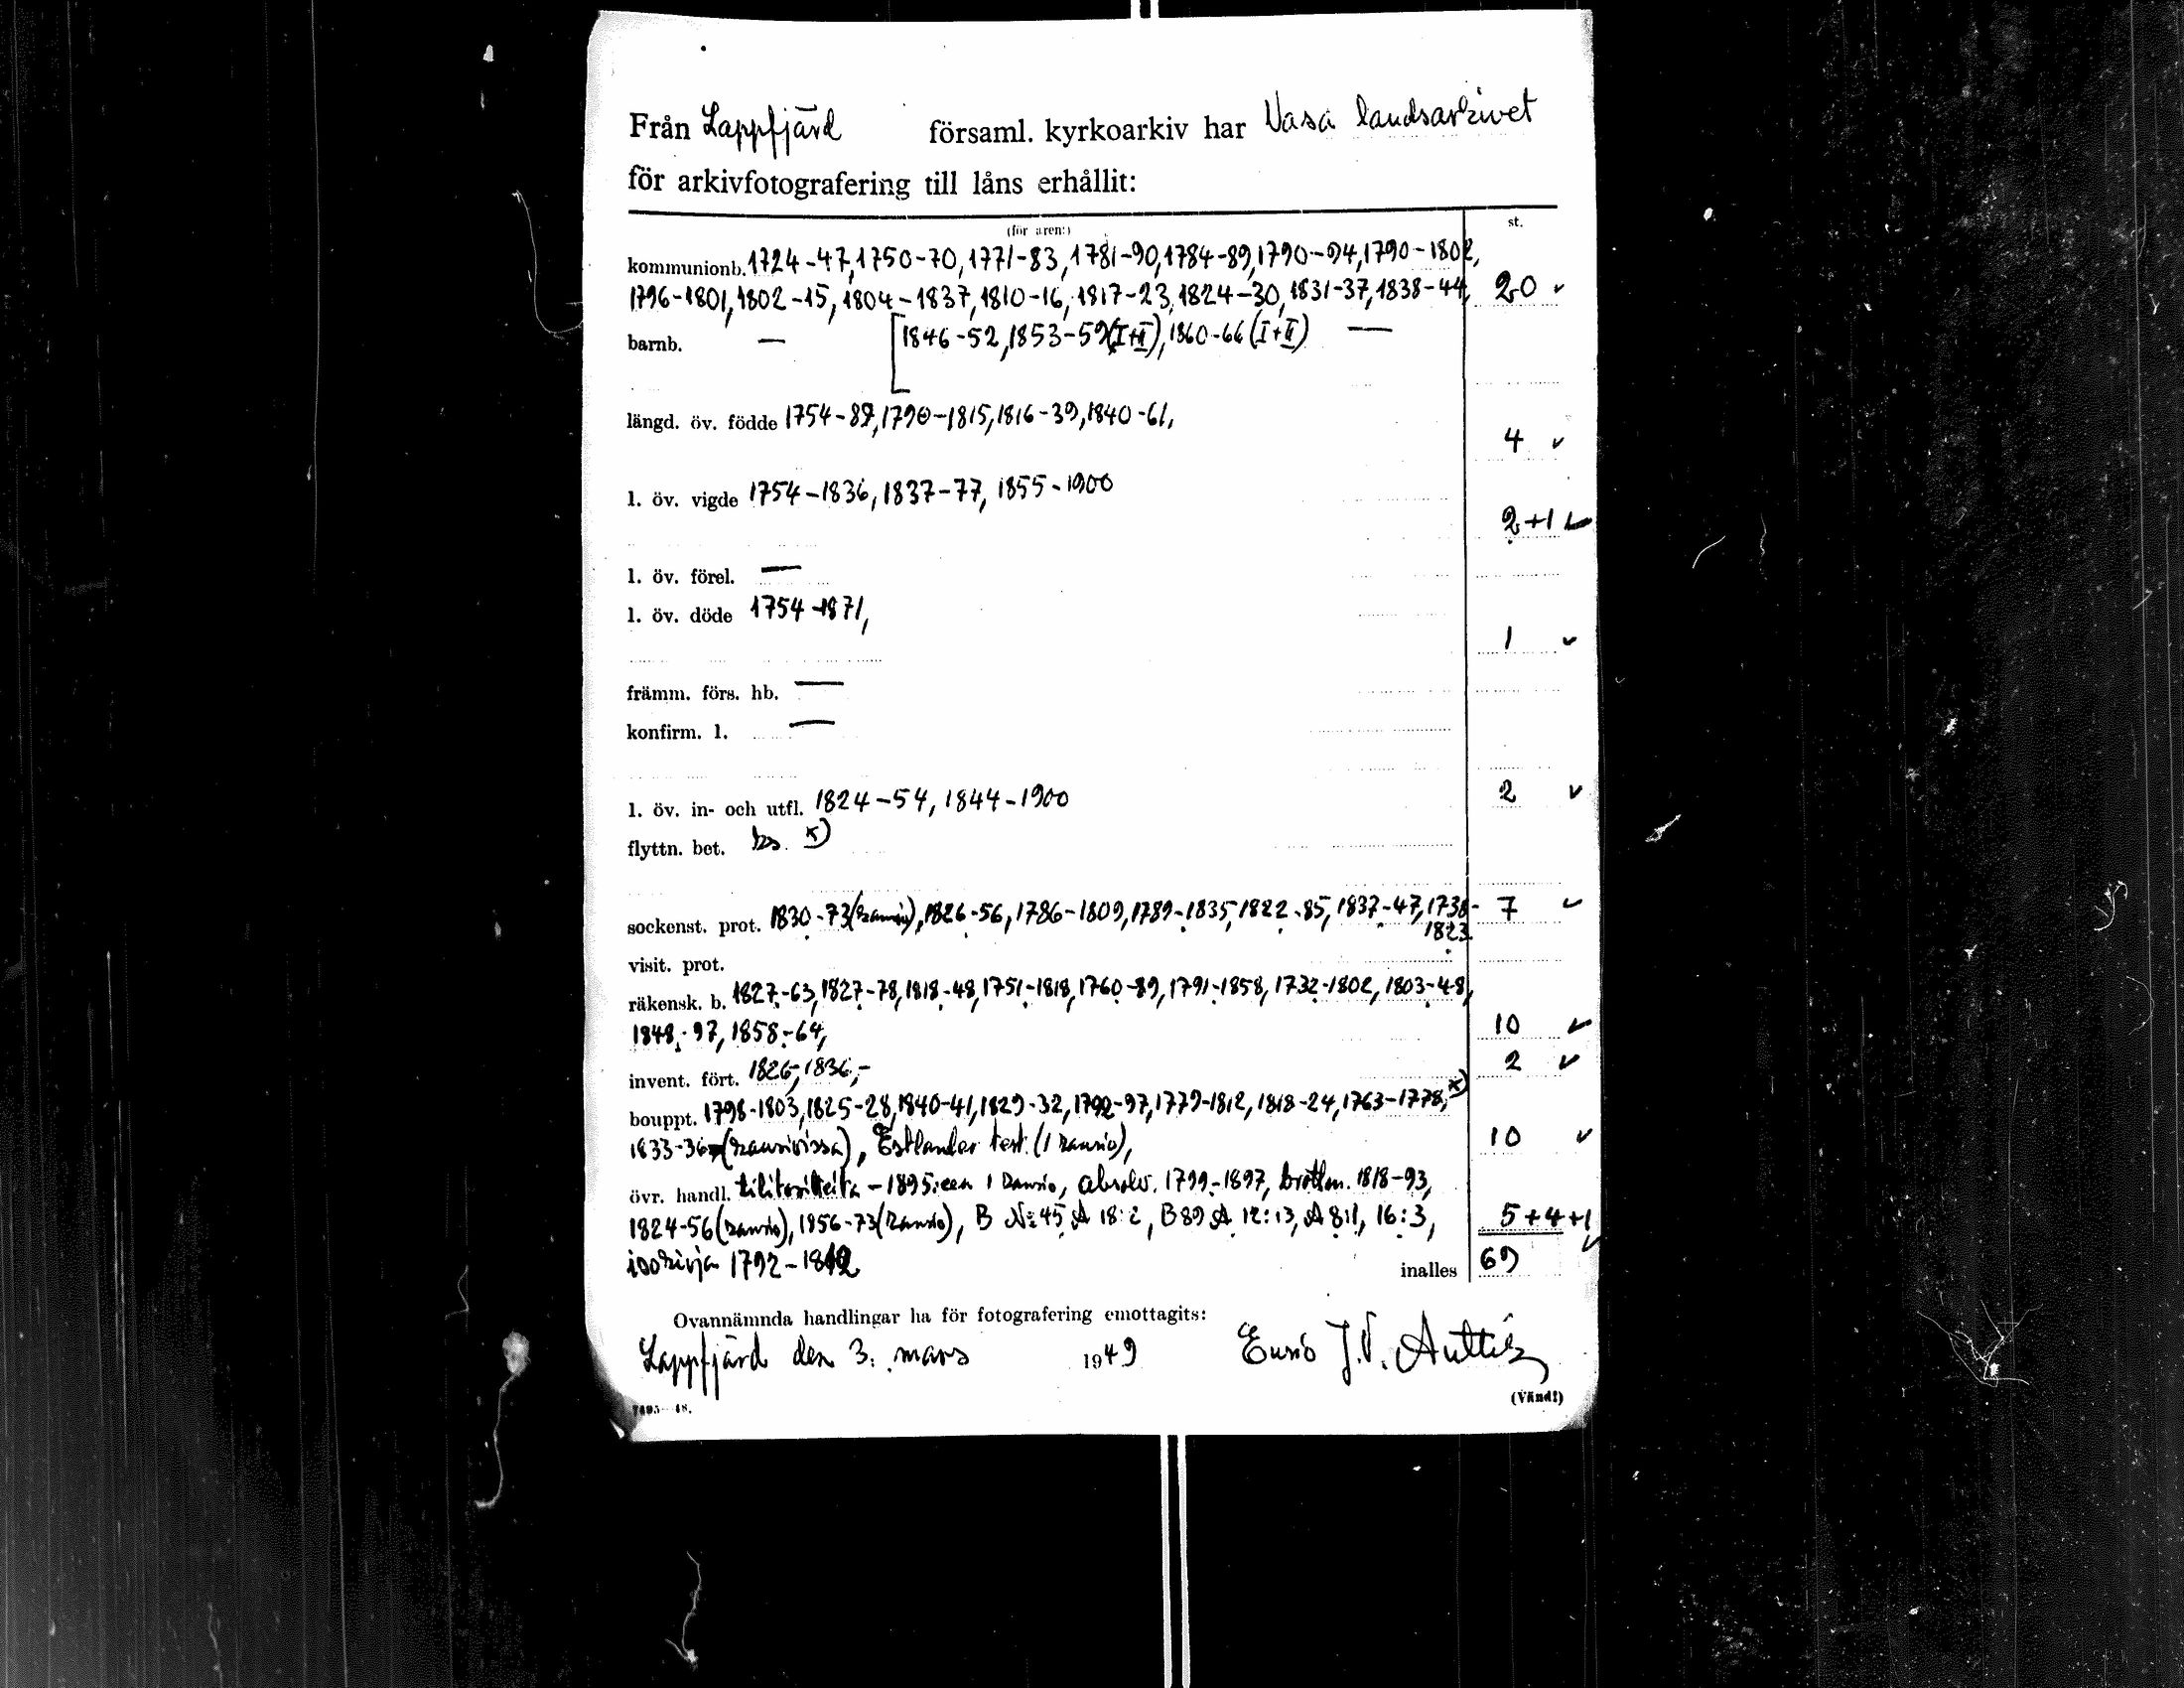 Från Lappfjärd församl. kyrkoarkiv har Vasa landsarkivet
för arkivfotografering till låns erhållit:
(för åren:) st.
kommunionb. 1724-47, 1750-70, 1771-83, 1781-90, 1784-89, 1790-94, 1790-1802,
1796-1801, 1802-15, 1804-1837, 1810-16, 1817-23, 1824-30, 1831-37, 1838-44, 20 ✓
barnb. — [1846-52, 1853-59 (I+II), 1860-66 (I+II) —
längd. öv. födde 1754-89, 1790-1815, 1816-39, 1840-61,
4 ✓
l. öv. vigde 1754-1836, 1837-77, 1855-1900
2+1 ✓
l. öv. förel. —
l. öv. döde 1754-1871,
1 ✓
främm. förs. hb. —
konfirm. l. —
l. öv. in- och utfl. 1824-54, 1844-1900 2 ✓
flyttn. bet. x)
sockenst. prot. 1830-73 (kansio), 1826-56, 1786-1809, 1789-1835, 1822-85, 1837-47, 1738- 7 ✓
1823
visit. prot.
räkensk. b. 1827-63, 1827-78, 1818-48, 1751-1818, 1760-89, 1791-1858, 1732-1802, 1803-48,
1848-97, 1858-64, 10 ✓
invent. fört. 1826-, 1836,- 2 ✓
bouppt. 1798-1803, 1825-28, 1840-41, 1829-32, 1792-97, 1779-1812, 1818-24, 1763-1778, x)
1833-36 (kansioissa), Estlander test. (1 kansio), 10 ✓
övr. handl. tilitositteita -1895:een 1 kansio, absolv. 1799-1897, brottm. 1818-93,
1824-56 (kansio), 1856-73 (kansio), B No 45 A 18:2, B 89 A 12:13, A 8:1, 16:3, 5+4+1 ✓
isokirja 1792-1812 inalles 69
Ovannämnda handlingar ha för fotografering emottagits:
Lappfjärd den 3. mars 1949 J.V.
(Vänd!)